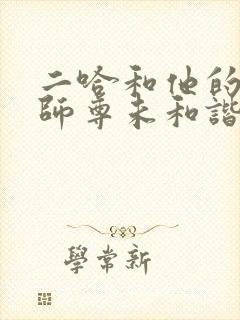 二哈和他的
師尊未和諧
學常新